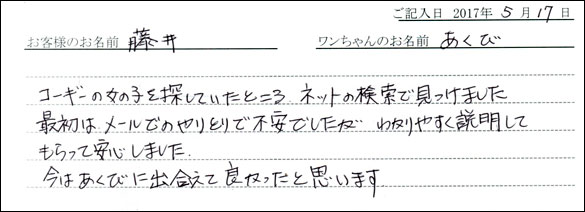 ご記入日 2017年 5月17日
お客様のお名前 藤井 ワンちゃんのお名前 あくび
コーギーの女の子を探していたところ、ネットの検索で見つけました
最初は、メールでのやりとりで不安でしたが わかりやすく説明して
もらって安心しました。
今はあくびに出合えて良かったと思います。